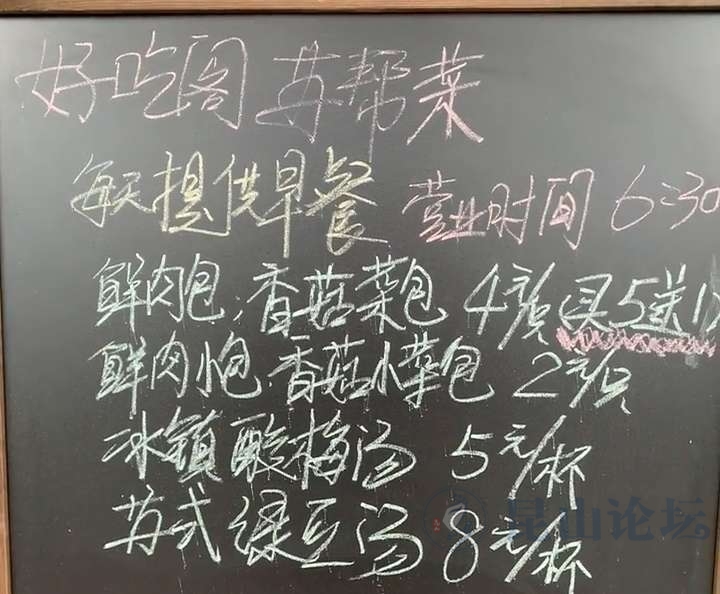 好吃阁 苏帮菜
每天提供早餐 营业时间 6:30
鲜肉包,香菇菜包 4元/只 买5送1
鲜肉小包.香菇小菜包 2元/只
冰镇酸梅汤 5元/杯
苏式绿豆汤 8元/杯
昆山论坛